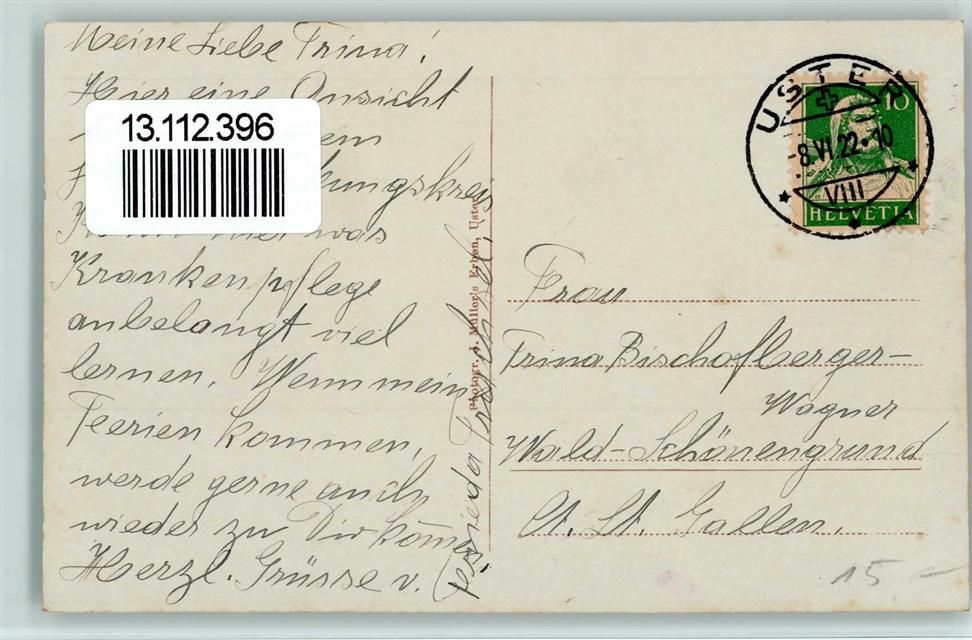 Meine Liebe Trina!
Hier eine Ansicht
13.112.396
ungskreis
was
Krankenpflege
anbelangt viel
lernen. Wenn mein
Feerien kommen,
werde gerne auch
wieder zu Dir kom̄en.
Herzl. Grüsse v.
Frieda
Photogr. J. Müller's Erben, Uster.
USTER
-8.VI.22•10
VIII
10
HELVETIA
Frau
Trina Bischofberger-
Wagner
Wald-Schönengrund
Ct. St. Gallen.
15.-